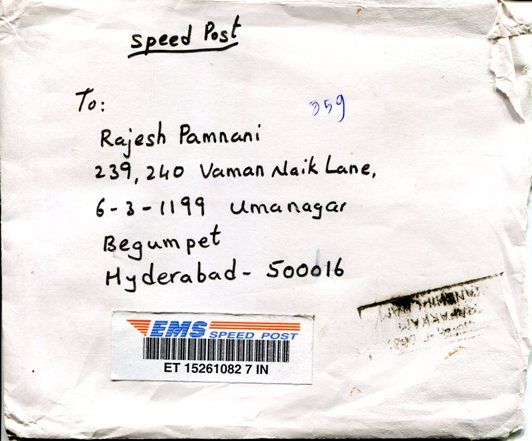 Speed Post
To:
359
Rajesh Pamnani
239, 240 Vaman Naik Lane,
6-3-1199 Umanagar
Begumpet
Hyderabad - 500016
EMS SPEED POST
ET 15261082 7 IN